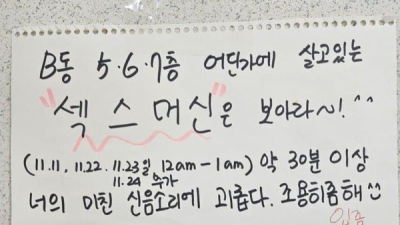 B동 5·6·7층 어딘가에 살고있는
"섹스머신"은 보아라~! ^^
(11.11, 11.22, 11.23일, 12am-1am) 약 30분 이상
11.24 추가
너의 미친 신음소리에 괴롭다. 조용히좀해^^